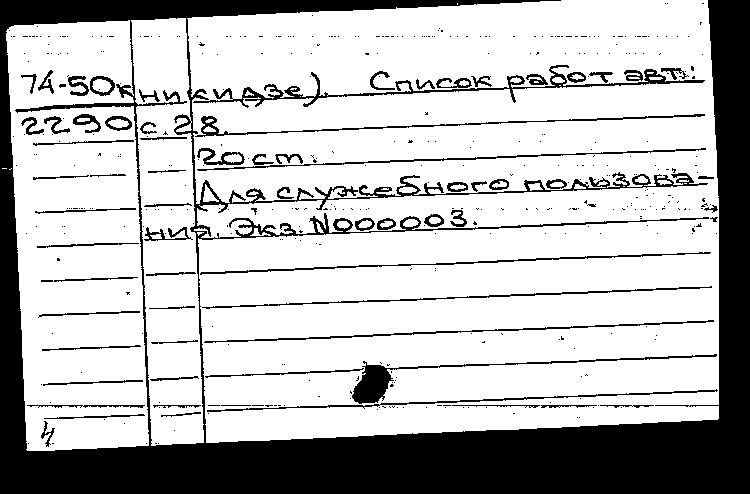 74-50к никидзе). Список работ авт.:
2290 с. 28.
20 ст.
Для служебного пользова-
ния. Экз. N000003.
4